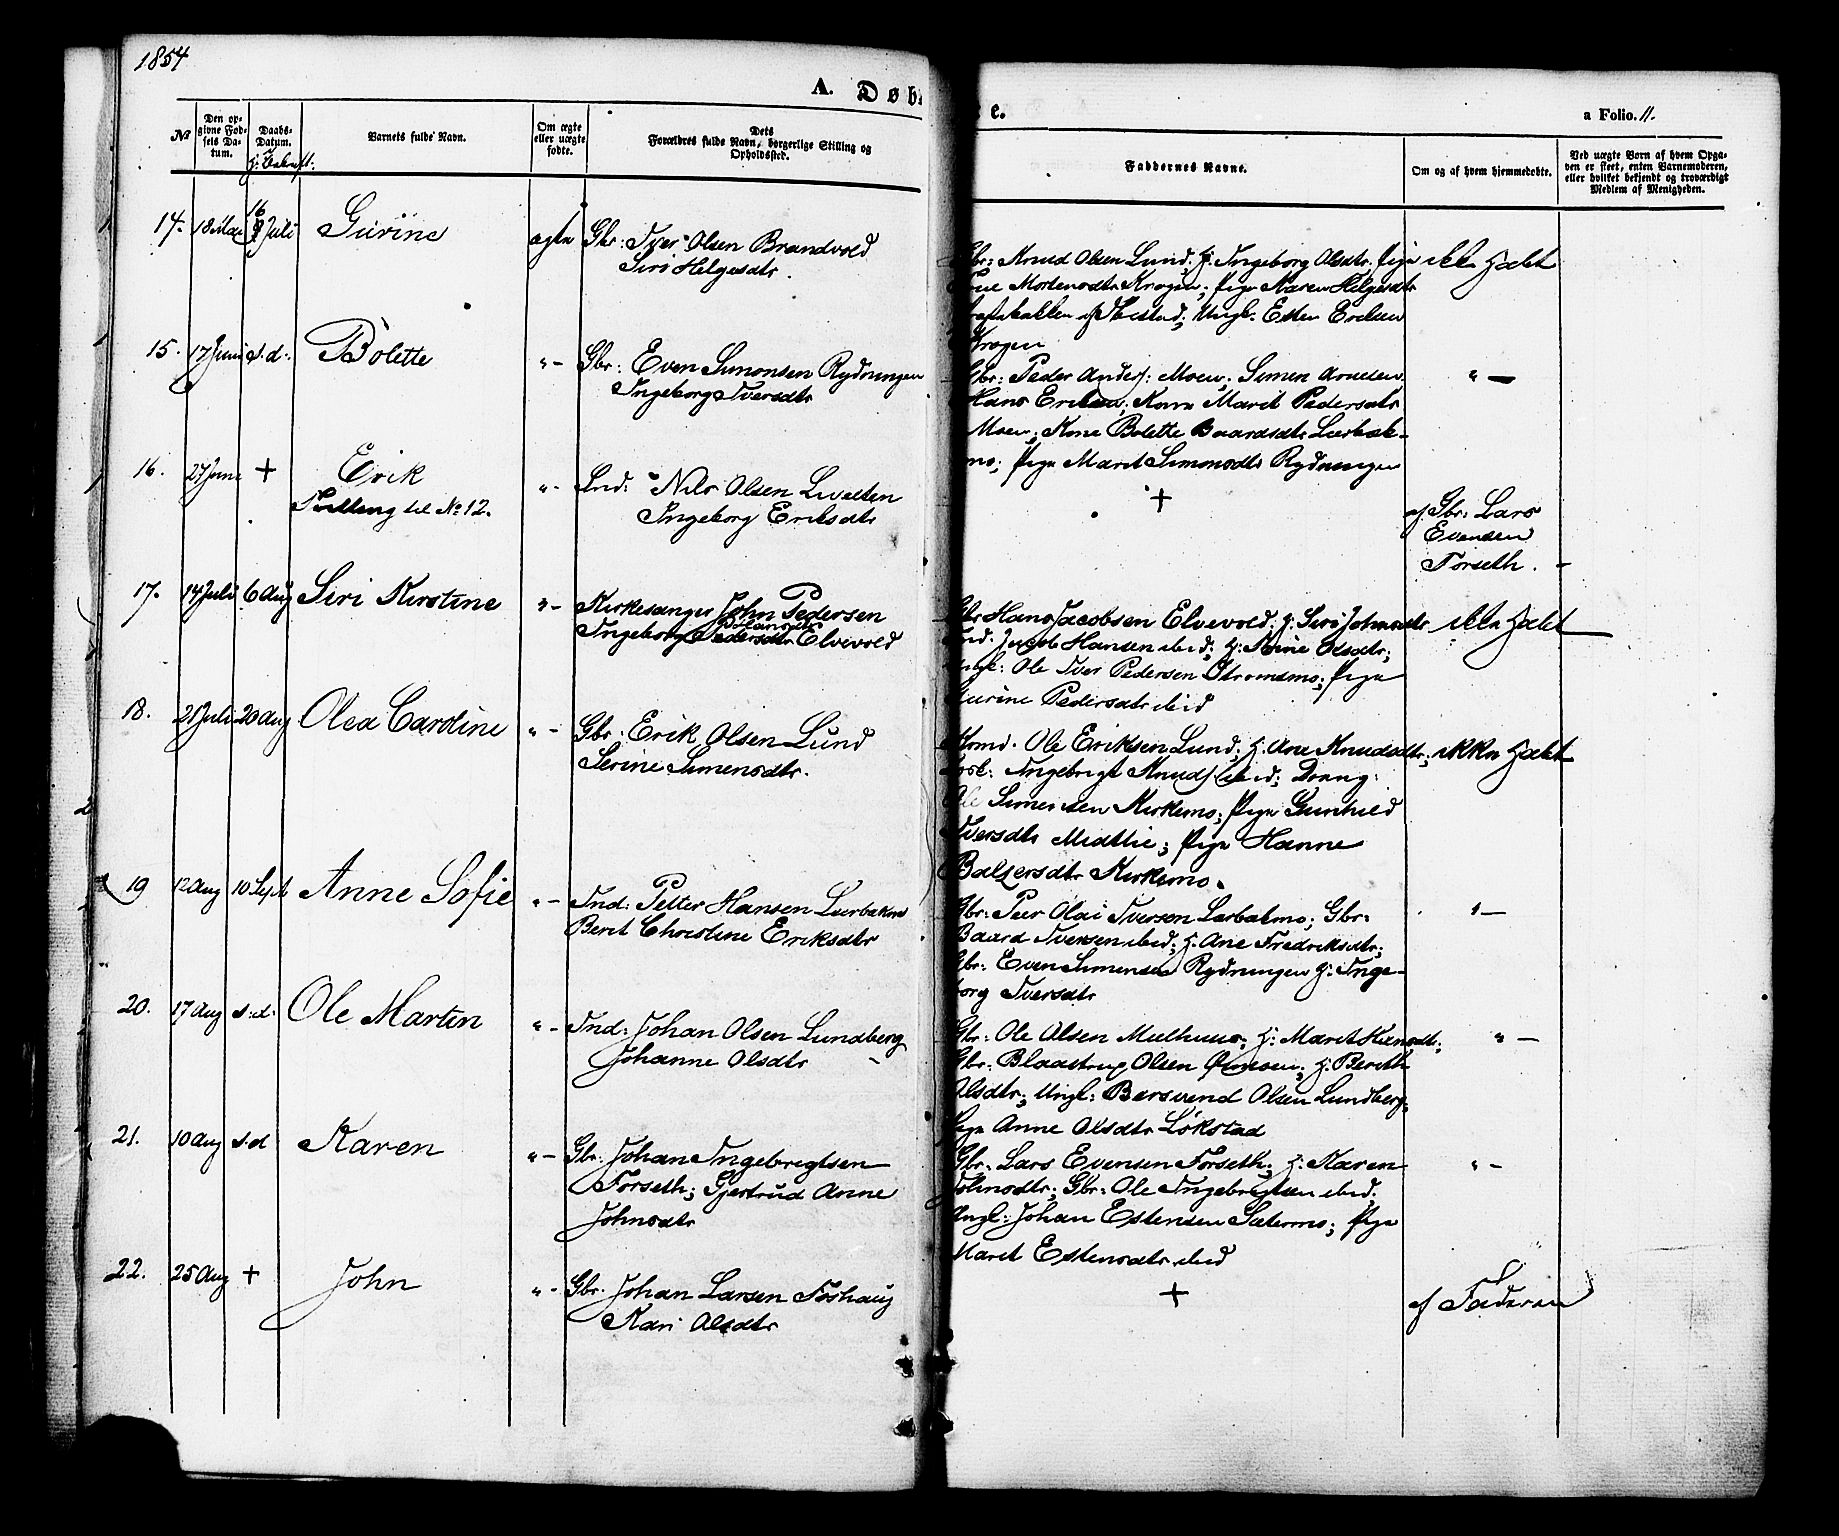 1854
A. Døbte.
a Folio. 11.
№
Den op-
givne Fød-
sels Da-
tum.
Daabs-
Datum.
Varnets fulde Navn.
Om ægte
eller uægte
fødte.
Dets
Forældres fulde Navn, borgerlige Stilling og
Opholdssted.
Faddernes Navne.
Om og af hvem hjemmedøbte.
Ved uægte Born af hvem Opga-
ven er skeet, enten Barnemoderen,
eller hvilket bekjendt og troværdigt
Medlem af Menigheden.
14. 18 Mai 16 Juli Gurine ægte Gbr: Iver Olsen Brandvold
Siri Helgesdtr.
Gbr: Knud Olsen Lund; H: Ingeborg Olsdtr. Pige
Mortensdtr Krogen; Pige Karen Helgesdtr
Ungk: Esten Erelsen
Krogen
ikke Hdbt
15. 17 Juni s.d: Bolette "- Gbr: Even Simonsen Rydningen
Ingeborg Iversdtr
Gbr: Peder Anders: Moen; Simen Arnesen
Hans Eriksen; Kone Marit Pedersdtr
Moen; Kone Bolette Baardsdtr Lærbek-
mo; Pige Marit Simonsdtr Rydningen
" -
16. 27 Juni + Erik "- Ind: Nils Olsen
Tvilling til No 12.
Ingeborg Eriksdtr
+
af Gbr: Lars
Evensen
Forseth. -
17. 14 Juli 6 Aug Siri Kirstine "- Kirkesanger John Pedersen
Hansdtr
Ingeborg Pedersdtr Elvevold
Gbr Hans Jacobsen Elvevold; H: Siri Johnsdtr
Ind: Jacob Hansen ibid; H: Stine Olsdtr;
Ungk: Ole Iver Pedersen Strømsmo; Pige
Gurine Pedersdtr ibid
ikke Hdbt
18. 21 Juli 20 Aug Olea Caroline "- Gbr: Erik Olsen Lund
Serine Simensdtr.
Ole Eriksen Lund; H. Ane Knudsdtr;
Ingebrigt Knuds ibid; Dreng:
Ole Simensen Kirkemo; Pige Gunhild
Iversdtr Midtlie; Pige Hanne
Balzersdtr Kirkemo.
ikke Hdbt
19 12 Aug 10 Sept Anne Sofie "- Ind: Petter Hansen Lærbekmo
Berit Christine Eriksdtr
Gbr: Peer Olai Iversen Lærbekmo; Gbr:
Baard Iversen ibid; H. Ane Fredriksdtr;
Gbr: Even Simensen Rydningen H: Inge-
borg Iversdtr
" -
20. 17 Aug s:d: Ole Martin "- Ind: Johan Olsen Lundberg
Johanne Olsdtr -
Gbr: Ole Olsen Melhuus; H: Marit Hansdtr;
Gbr: Blaastrup Olsen; H: Berith
Olsdtr; Ungk: Bersvend Olsen Lundberg;
Pige Anne Olsdtr Løkstad
" -
21. 10 Aug s.d Karen "- Gbr: Johan Ingebregtsen
Forseth; Gjertrud Anne
Johnsdtr
Gbr: Lars Evensen Forseth; H: Karen
Johnsdtr; Gbr: Ole Ingebregtsen ibid;
Ungk: Johan Estensen Sætermo; Pige
Marit Estensdtr ibid
" -
22. 25 Aug + John "- Gbr. Johan Larsen Foshaug
Kari Olsdtr
+
af Faderen